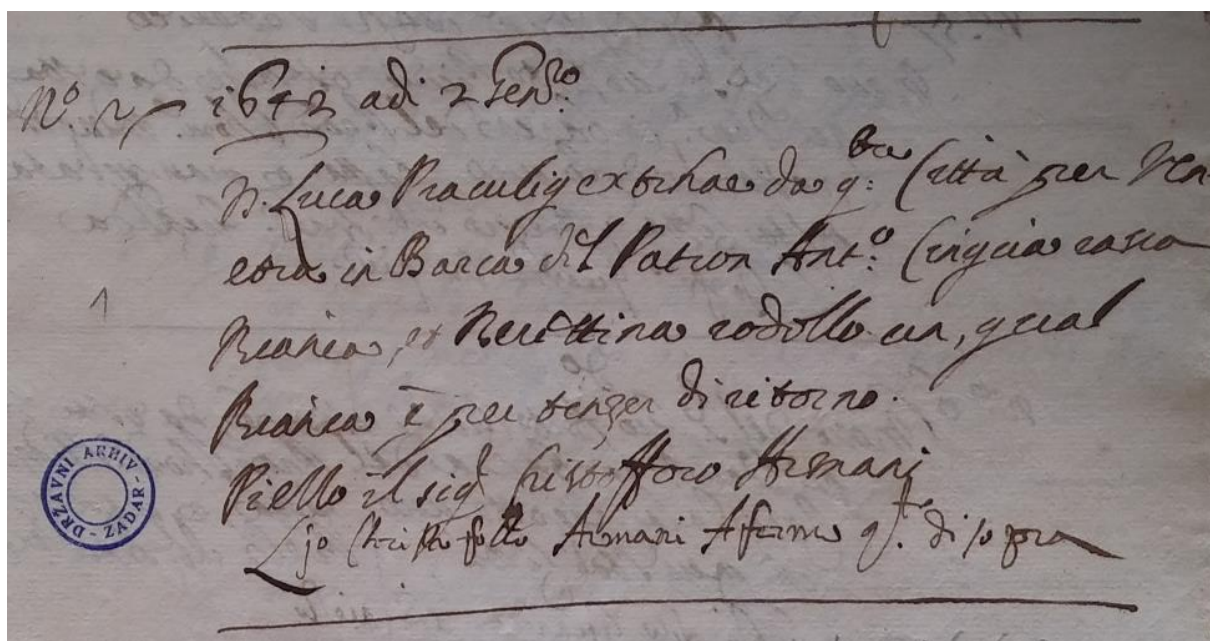 N.º 2 1642 adi 2 Gen.ro
S. Luca Praculig extrhae da q.sta Città per Ven
etia in Barca del Patron Ant.º Cingria rassa
Bianca, et Berettina rodollo un, qual
Bianca è per tenzer di ritorno.
Piello il sig.r Cristofforo Armani
Io Christofollo Armani Afermo q.to di sopra
1
DRŽAVNI ARHIV - ZADAR -